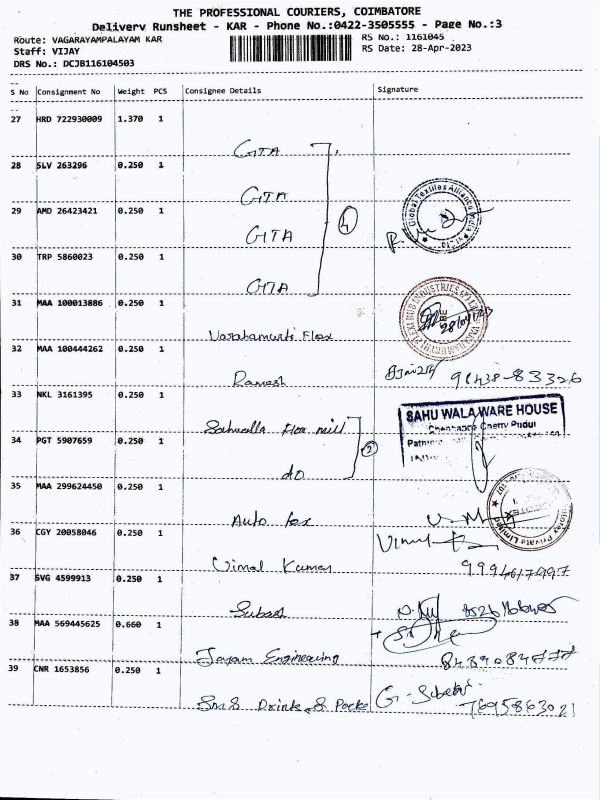 THE PROFESSIONAL COURIERS, COIMBATORE
Delivery Runsheet - KAR - Phone No.:0422-3505555 - Page No.:3
Route: VAGARAYAMPALAYAM KAR
RS No.: 1161045
Staff: VIJAY
RS Date: 28-Apr-2023
DRS No.: DCJB116104503
S No Consignment No Weight PCS Consignee Details Signature
27 HRD 722930009 1.370 1
GTA
28 SLV 263296 0.250 1
GTA
29 AMD 26423421 0.250 1
GTA
30 TRP 5860023 0.250 1
GTA
4
Global Textiles Alliance India Pvt Ltd
31 MAA 100013886 0.250 1
Varahamurti Flex
28/04/23
32 MAA 100444262 0.250 1
Ramesh
98438-83326
33 NKL 3161395 0.250 1
mill
SAHU WALA WARE HOUSE
Chennappa Chetty Pudur
34 PGT 5907659 0.250 1
do
2
35 MAA 299624450 0.250 1
Auto
Private Limited
36 CGY 20058046 0.250 1
Vimal Kumar
Vimal
9994617997
37 SVG 4599913 0.250 1
Subash
38 MAA 569445625 0.660 1
Jayam Engineering
39 CNR 1653856 0.250 1
Drinks & Packs
G.
7695863021